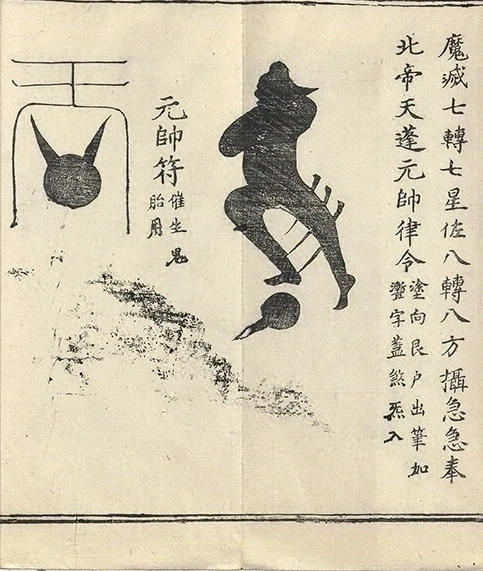 魔滅七轉七星佐八轉八方攝急急奉
北帝天蓬元帥律令
塗向艮户出筆如
字蓋煞炁入
元帥符
催生鬼
胎用